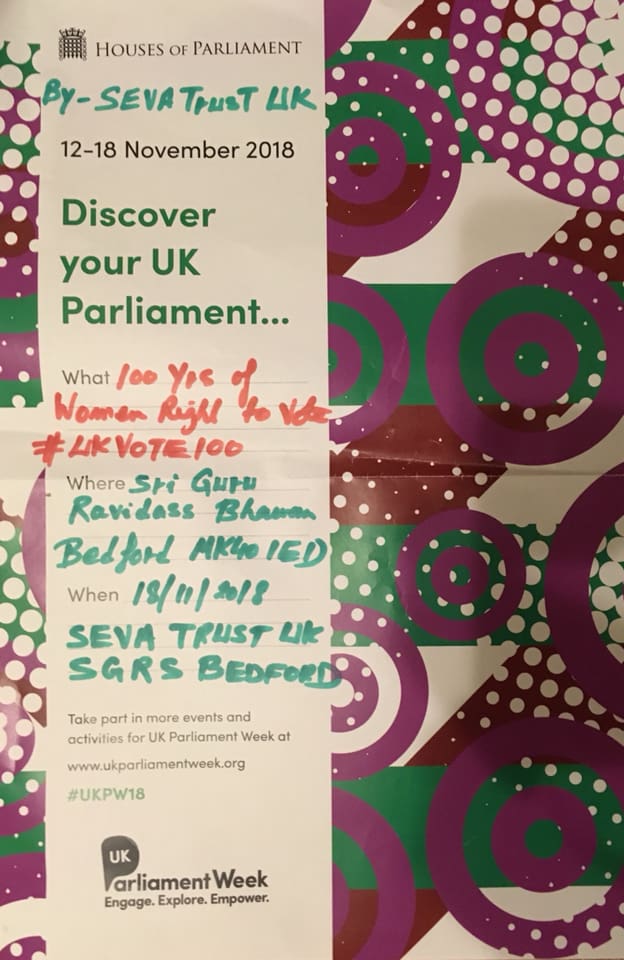 HOUSES OF PARLIAMENT
By - SEVA TrusT UK
12-18 November 2018
Discover
your UK
Parliament...
What 100 Yrs of
Women Right to Vote
#UKVOTE100
Where Sri Guru
Ravidass Bhawan
Bedford MK40 1ED
When 18/11/2018
SEVA TRUST UK
SGRS BEDFORD
Take part in more events and
activities for UK Parliament Week at
www.ukparliamentweek.org
#UKPW18
UK
Parliament Week
Engage. Explore. Empower.